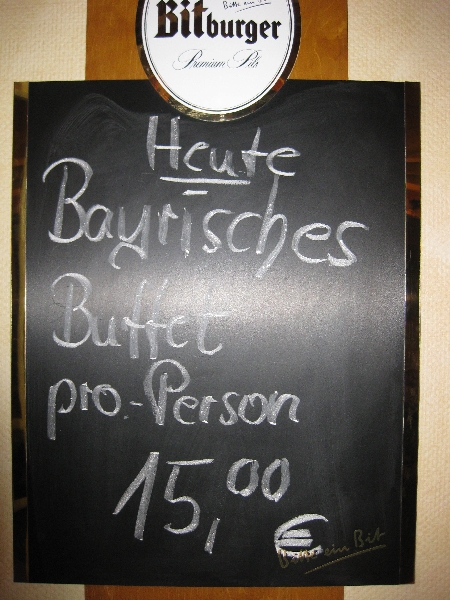 Bitte ein Bit
Bitburger
Premium Pils
Heute
Bayrisches
Buffet
pro.-Person
15,00
€
Bitte ein Bit